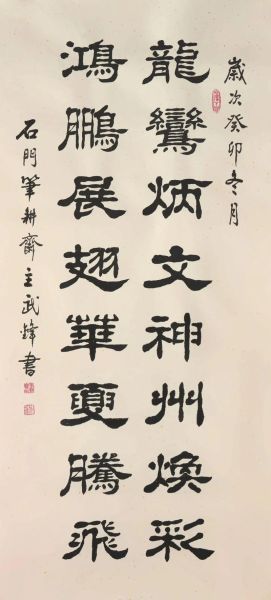 歲次癸卯冬月
龍鸞炳文神州煥彩
鴻鵬展翅華夏騰飛
石門筆耕齋主武鋒書